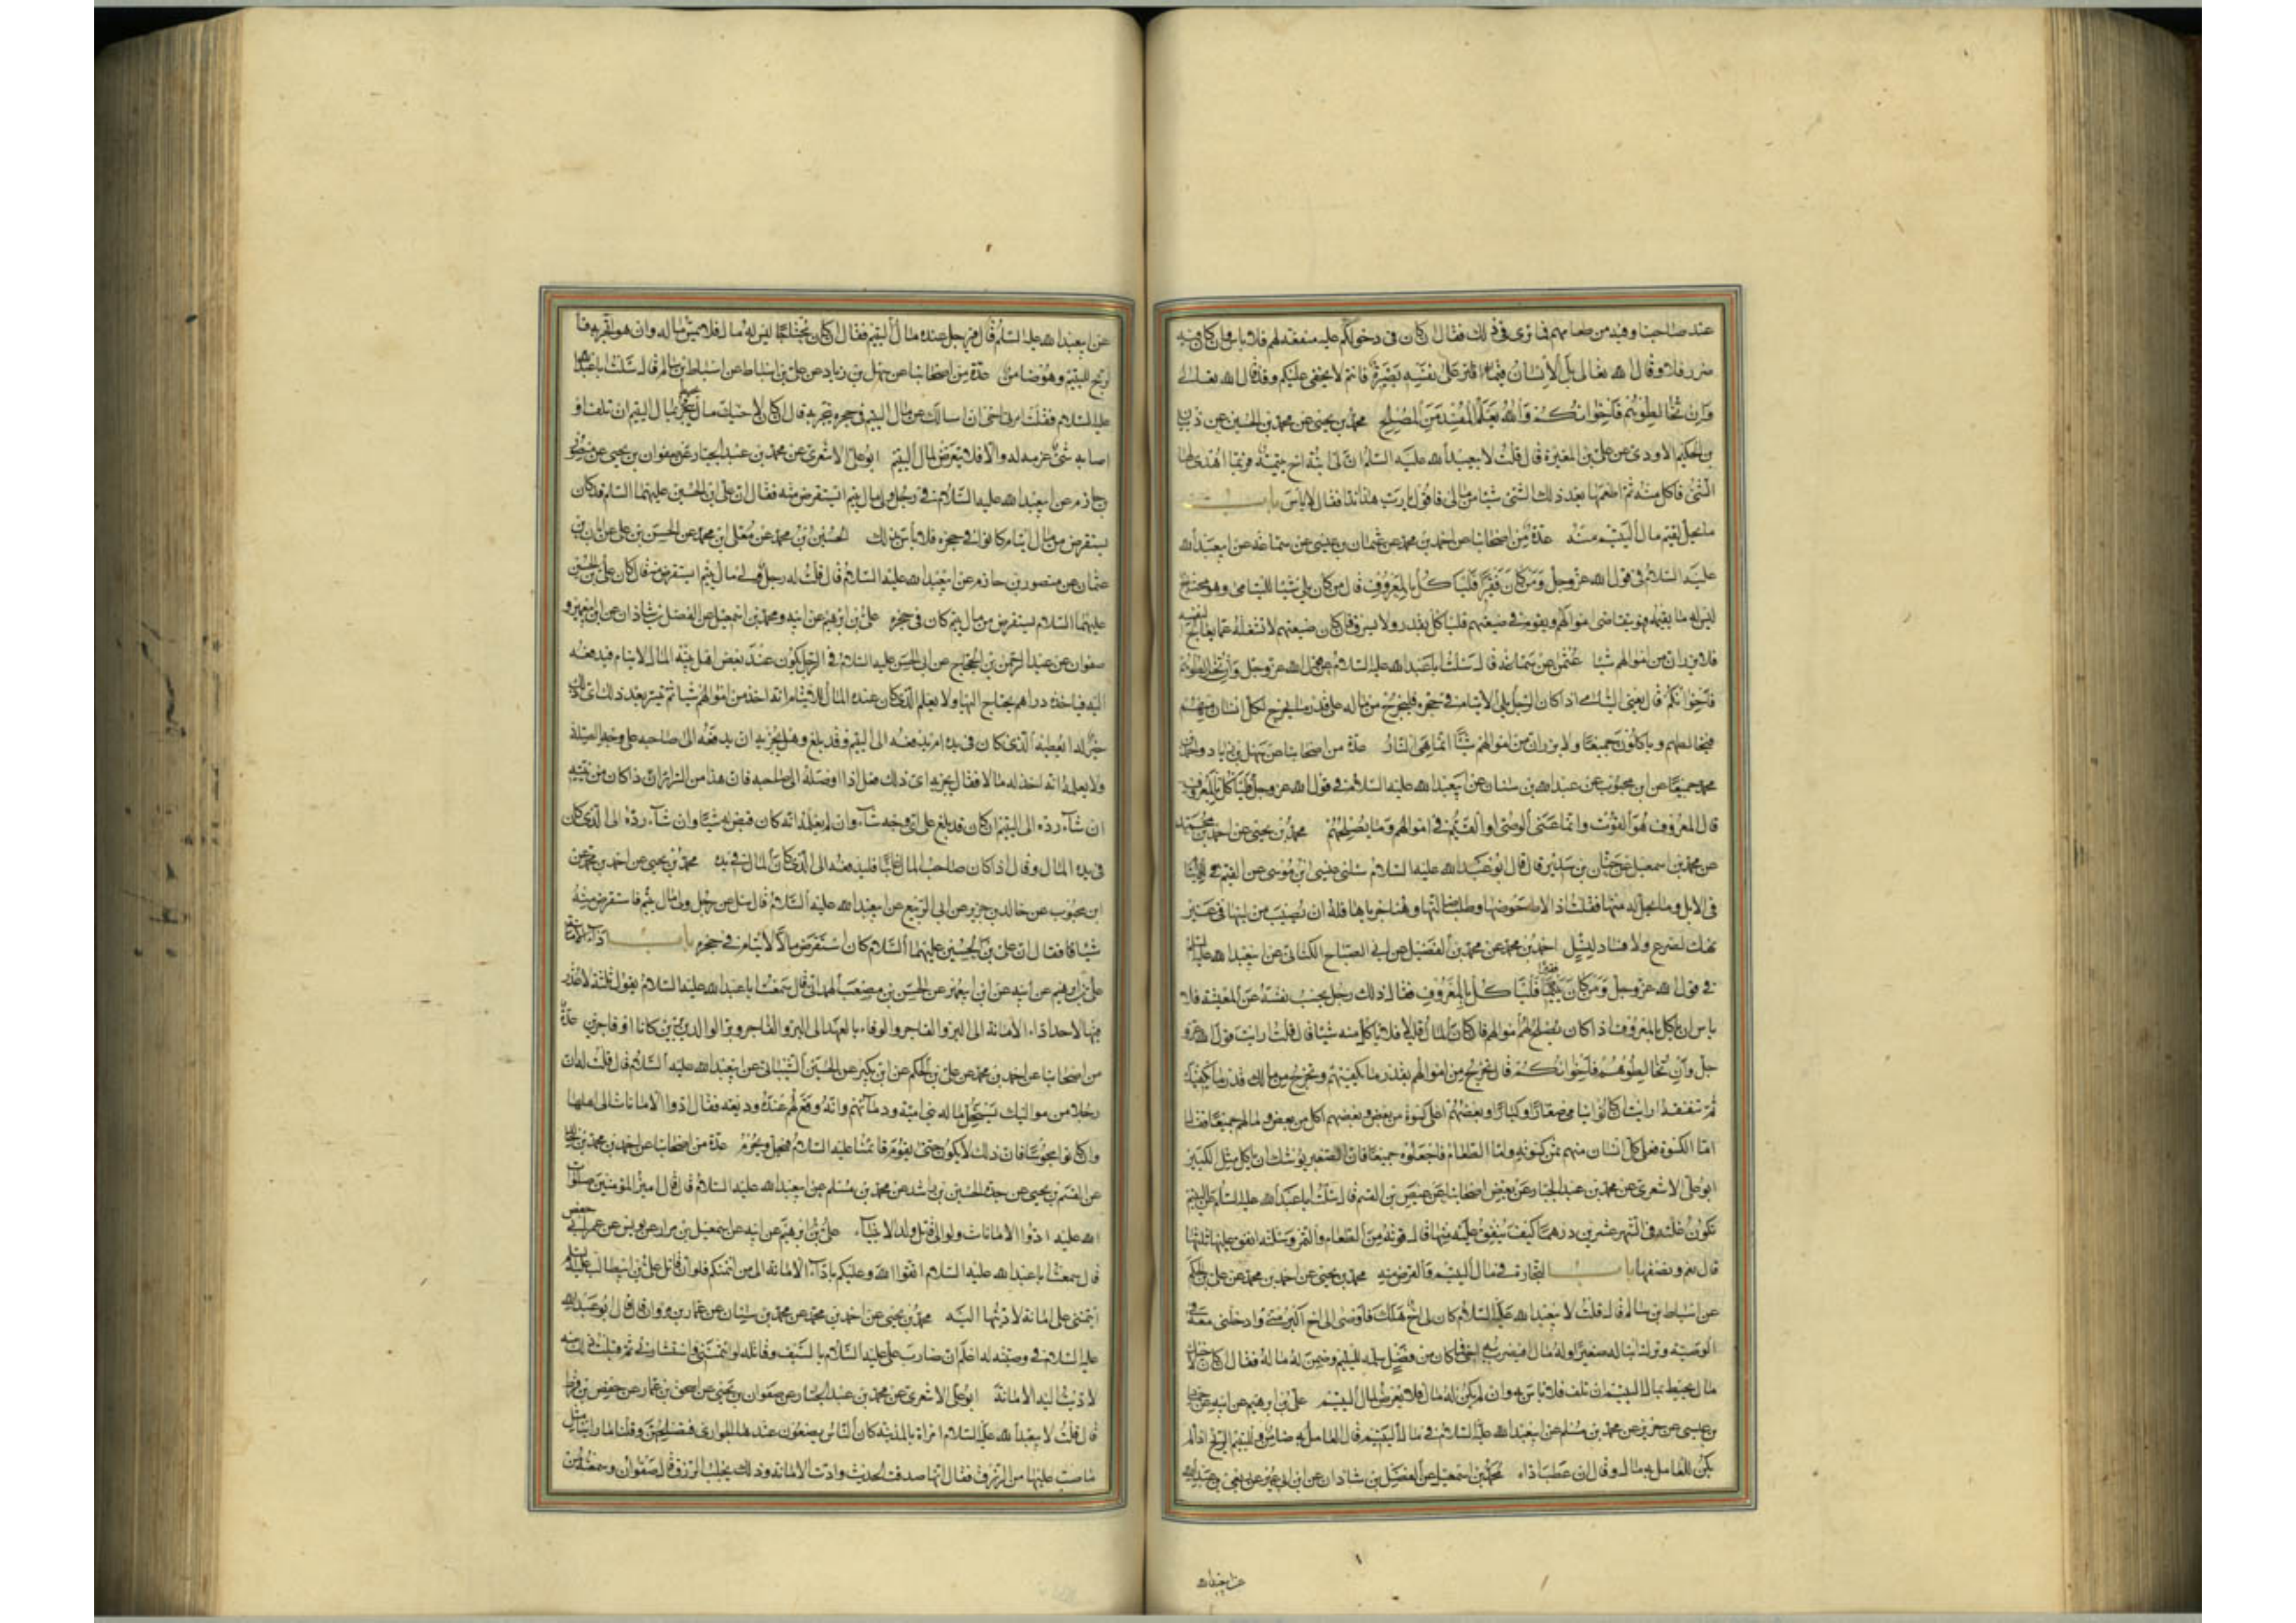 عند صاحبنا وفيه من طعامهم فما ترى في ذلك فقال ان كان في دخولكم عليه منفعة لهم فلا باس وان كان فيه
ضرر فلا وقال الله تعالى بل الانسان على نفسه بصيرة فانتم لا يخفى عليكم وقد قال الله تعالى
وَاِن تُخالِطوهُم فَاِخوانُكُم وَاللهُ يَعلَمُ المُفسِدَ مِنَ المُصلِح محمد بن يحيى عن محمد بن الحسين عن ذبيان
بن الحكيم الاودى عن على بن المغيرة قال قلت لابيعبدالله عليه السلام ان لى ابنة اخ يتيمة فربما اهدى لها
الشئ فاكل منه ثم اطعمها بعد ذلك الشئ من مالى فاقول يا رب هذا بذا فقال لا باس باب
ما يحل لقيم مال اليتيم منه عدة من اصحابنا عن احمد بن محمد عن عثمان بن عيسى عن سماعة عن ابيعبدالله
عليه السلام فى قول الله عز وجل وَمَن كانَ فَقيرًا فَليَأكُل بِالمَعروفِ قال من كان يلى شيئا لليتامى وهو محتاج
ليس له ما يقيمه فهو يتقاضى اموالهم ويقوم فى ضيعتهم فلياكل بقدر ولا يسرف فان كان ضيعتهم لا تشغله عما يعالج لنفسه
فلا يرزان من اموالهم شيئا عثمن عن سماعة قال سئلت اباعبدالله عليه السلام عن قول الله عز وجل وان تخالطوهم
فاخوانكم قال يعنى اليتامى اذا كان الرجل يلى الايتام فى حجره فليخرج من ماله على قدر ما يخرج لكل انسان منهم
فيخالطهم وياكلون جميعًا ولا يرزان من اموالهم شيئًا انما هى النار عدة من اصحابنا عن سهل بن زياد واحمد بن
محمد جميعًا عن ابن محبوب عن عبدالله بن سنان عن ابيعبدالله عليه السلام فى قول الله عز وجل فليأكل بالمعروف
قال المعروف هو القوت وانما عنى الوصى او القيم فى اموالهم وما يصلحهم محمد بن يحيى عن احمد بن محمد
عن محمد بن اسمعيل عن حنان بن سدير قال قال ابوعبدالله عليه السلام سئلنى عيسى ابن موسى عن القيم
فى الابل وما يحل له منها فقلت اذا لاط حوضها وطلب ضالتها وهنا جرباها فله ان يصيب من لبنها فى غير
نهك لضرع ولا فساد لنسل احمد بن محمد عن محمد بن الفضيل عن ابى الصباح الكنانى عن ابيعبدالله عليه السلم
فى قول الله عز وجل وَمَن كانَ فقيرا فَليَأكُل بِالمَعروفِ فقال ذلك رجل يحبس نفسه عن المعيشة فلا
باس ان ياكل بالمعروف اذا كان يصلح لهم اموالهم فان كان المال قليلا فلا ياكل منه شيئا قال قلت ارايت قول الله عز و
جل وَاِن تُخالِطوهُم فَاِخوانُكُم قال تخرج من اموالهم بقدر ما يكفيهم وتخرج من مالك قدر ما يكفيك
ثم تنفقه قلت ارايت ان كانوا ايتامى صغارًا وكبارًا وبعضهم اعلى كسوة من بعض وبعضهم اكل من بعض ومالهم جميعًا فقال
اما الكسوة فعلى كل انسان منهم ثمن كسوته واما الطعام فاجعلوه جميعًا فان الصغير يوشك ان ياكل مثل الكبير
ابوعلى الاشعرى عن محمد بن عبد الجبار عن بعض اصحابنا عن عيص بن القسم قال سئلت اباعبدالله عليه السلم عن اليتيم
تكون غلته فى الشهر عشرين درهما كيف ينفق عليه منها قال قوته من الطعام والتمر وسئلته انفق عليها ثلثها
قال نعم ونصفها باب التجارة فى مال اليتيم والقرض منه محمد بن يحيى عن احمد بن محمد عن على بن الحكم
عن اسباط بن سالم قال قلت لابيعبدالله عليه السلام كان لى اخ هلك فاوصى الى اخ اكبر منى وادخلنى معه فى
الوصية وترك ابنا له صغيرًا وله مال افيضرب به اخى فما كان من فضل سلمه لليتيم وضمن له ماله فقال ان كان لاخيك
مال يحيط بمال اليتيم ان تلف فلا باس به وان لم يكن له مال فلا يعرض لمال اليتيم على بن ابرهيم عن ابيه عن حماد
بن عيسى عن حريز عن محمد بن مسلم عن ابيعبدالله عليه السلام فى مال اليتيم قال العامل به ضامن ولليتيم الربح اذا لم
يكن للعامل به مال وقال ان عطب اداه محمد بن اسمعيل عن الفضل بن شاذان عن ابن ابى عمير عن ربعى بن عبدالله
عن ابيعبدالله
عن ابيعبدالله عليه السلم قال فى رجل عنده مال اليتيم فقال ان كان محتاجا ليس له مال فلا يمس ماله وان هو اتجر به فا
لربح لليتيم وهو ضامن عدة من اصحابنا عن سهل بن زياد عن على بن اسباط عن اسباط بن سالم قال سئلت اباعبدالله
عليه السلام فقلت امرنى اخى ان اسالك عن مال اليتيم فى حجره يتجر به قال ان كان لاخيك مال يحيط بمال اليتيم ان تلف او
اصابه شئ غرمه له والا فلا يتعرض لمال اليتيم ابوعلى الاشعرى عن محمد بن عبد الجبار عن صفوان بن يحيى عن منصور بن
حازم عن ابيعبدالله عليه السلام فى رجل ولى مال يتيم ايستقرض منه فقال ان على ابن الحسين عليهما السلم قد كان
يستقرض من مال ايتام كانوا فى حجره فلا باس بذلك الحسين بن محمد عن معلى ابن محمد عن الحسن بن على عن ابان بن
عثمان عن منصور بن حازم عن ابيعبدالله عليه السلام قال قلت له رجل ولى مال يتيم ايستقرض منه قال كان على بن الحسين
عليهما السلام يستقرض من مال يتيم كان فى حجره على بن ابرهيم عن ابيه ومحمد بن اسمعيل عن الفضل بن شاذان عن ابن ابى عمير و
صفوان عن عبد الرحمن بن الحجاج عن ابى الحسن عليه السلام فى الرجل يكون عند بعض اهل بيته المال لايتام فيدفعه
اليه فياخذ منه دراهم يحتاج اليها ولا يعلم الذى كان عنده المال للايتام انه اخذ من اموالهم شيئا ثم تيسر بعد ذلك اى ذلك
خير له ايعطيه الذى كان فى يده ام يدفعه الى اليتيم وقد بلغ وهل يجزيه ان يدفعه الى صاحبه على وجه الصلة
ولا يعلمه انه اخذ له مالا فقال يجزيه اى ذلك فعل اذا اوصله الى صاحبه فان هذا من السرائر اذا كان من نيته
ان شاء رده الى اليتيم ان كان قد بلغ على اى وجه شاء وان لم يعلمه انه كان قبض له شيئًا وان شاء رده الى الذى كان
فى يده المال وقال اذا كان صاحب المال غائبًا فليدفعه الى الذى كان المال فى يده محمد بن يحيى عن احمد بن محمد عن
ابن محبوب عن خالد بن جرير عن ابى الربيع عن ابيعبدالله عليه السلام قال سئل عن رجل ولى مال يتيم فاستقرض منه
شيئا فقال ان على بن الحسين عليهما السلام كان استقرض مالا لايتام فى حجره باب اداء الامانة
على بن ابرهيم عن ابيه عن ابن ابيعمير عن الحسين بن مصعب الهمدانى قال سمعت اباعبدالله عليه السلام يقول ثلثة لا عذر
فيها لاحد اداء الامانة الى البر والفاجر والوفاء بالعهد الى البر والفاجر وبر الوالدين برين كانا او فاجرين عدة
من اصحابنا عن احمد بن محمد عن على بن الحكم عن ابن بكير عن الحسين الشيبانى عن ابيعبدالله عليه السلام قال قلت له ان
رجلا من مواليك يستحل مال بنى امية ودماءهم وانه وقع لهم عنده وديعة فقال ادوا الامانات الى اهلها
وان كانوا مجوسًا فان ذلك لا يكون حتى يقوم قائمنا عليه السلام فيحل ويحرم عدة من اصحابنا عن احمد بن محمد بن خالد
عن القسم بن يحيى عن جده الحسن بن راشد عن محمد بن مسلم عن ابيعبدالله عليه السلام قال قال امير المؤمنين صلوات
الله عليه ادوا الامانات ولو الى قاتل ولد الانبياء على بن ابرهيم عن ابيه عن اسمعيل بن مرار عن يونس عن عمر بن ابى حفص
قال سمعت اباعبدالله عليه السلام اتقوا الله وعليكم باداء الامانة الى من ائتمنكم فلو ان قاتل على بن ابيطالب عليه السلم
ائتمننى على امانة لاديتها اليه محمد بن يحيى عن احمد بن محمد عن محمد بن سنان عن عمار بن مروان قال قال ابوعبدالله
عليه السلام فى وصيته له اعلم ان ضارب على عليه السلام بالسيف وقاتله لو ائتمننى واستشارنى ثم قبلت ذلك منه
لاديت اليه الامانة ابوعلى الاشعرى عن محمد بن عبد الجبار عن صفوان بن يحيى عن اسحق بن عمار عن حفص بن قرط
قال قلت لابيعبدالله عليه السلام امراة بالمدينة كان الناس يضعون عندها الجوارى فتصلحهن وقلنا ما راينا مثل
ما صب عليها من الرزق فقال انها صدقت الحديث وادت الامانة وذلك يجلب الرزق قال صفوان وسمعته من